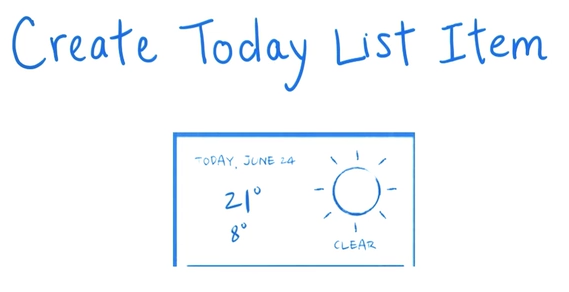 Create Today List Item
TODAY, JUNE 24
21°
8°
CLEAR